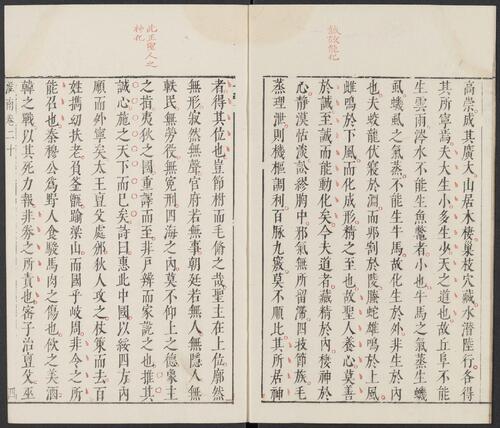 誠故能化
高崇成其廣大山居木棲巢枝穴藏水潛陸行各得
其所寧焉夫大生小多生少天之道也故丘阜不能
生雲雨涔水不能生魚鼈者小也牛馬之氣蒸生蟣
虱蟣虱之氣蒸不能生牛馬故化生於外非生於內
也夫蛟龍伏寢於淵而卵割於陵螣蛇雄鳴於上風
雌鳴於下風而化成形精之至也故聖人養心莫善
於誠至誠而能動化矣今夫道者藏精於內棲神於
心靜漠恬淡訟繆胸中邪氣無所留滯四枝節族毛
蒸理泄則機樞調利百脈九竅莫不順比其所居神
此正聖人之
神化
者得其位也豈節柎而毛脩之哉聖主在上位廓然
無形寂然無聲官府若無事朝廷若無人無隱人無
軼民無勞役無冤刑四海之內莫不仰上之德象主
之指夷狄之國重譯而至非戶辨而家說之也推其
誠心施之天下而已矣詩曰惠此中國以綏四方內
順而外寧矣太王亶父處邠狄人攻之杖策而去百
姓攜幼扶老負釜甑踰梁山而國乎岐周非令之所
能召也秦穆公為野人食駿馬肉之傷也飲之美酒
韓之戰以其死力報非券之所責也宓子治亶父巫
淮南卷二十
四